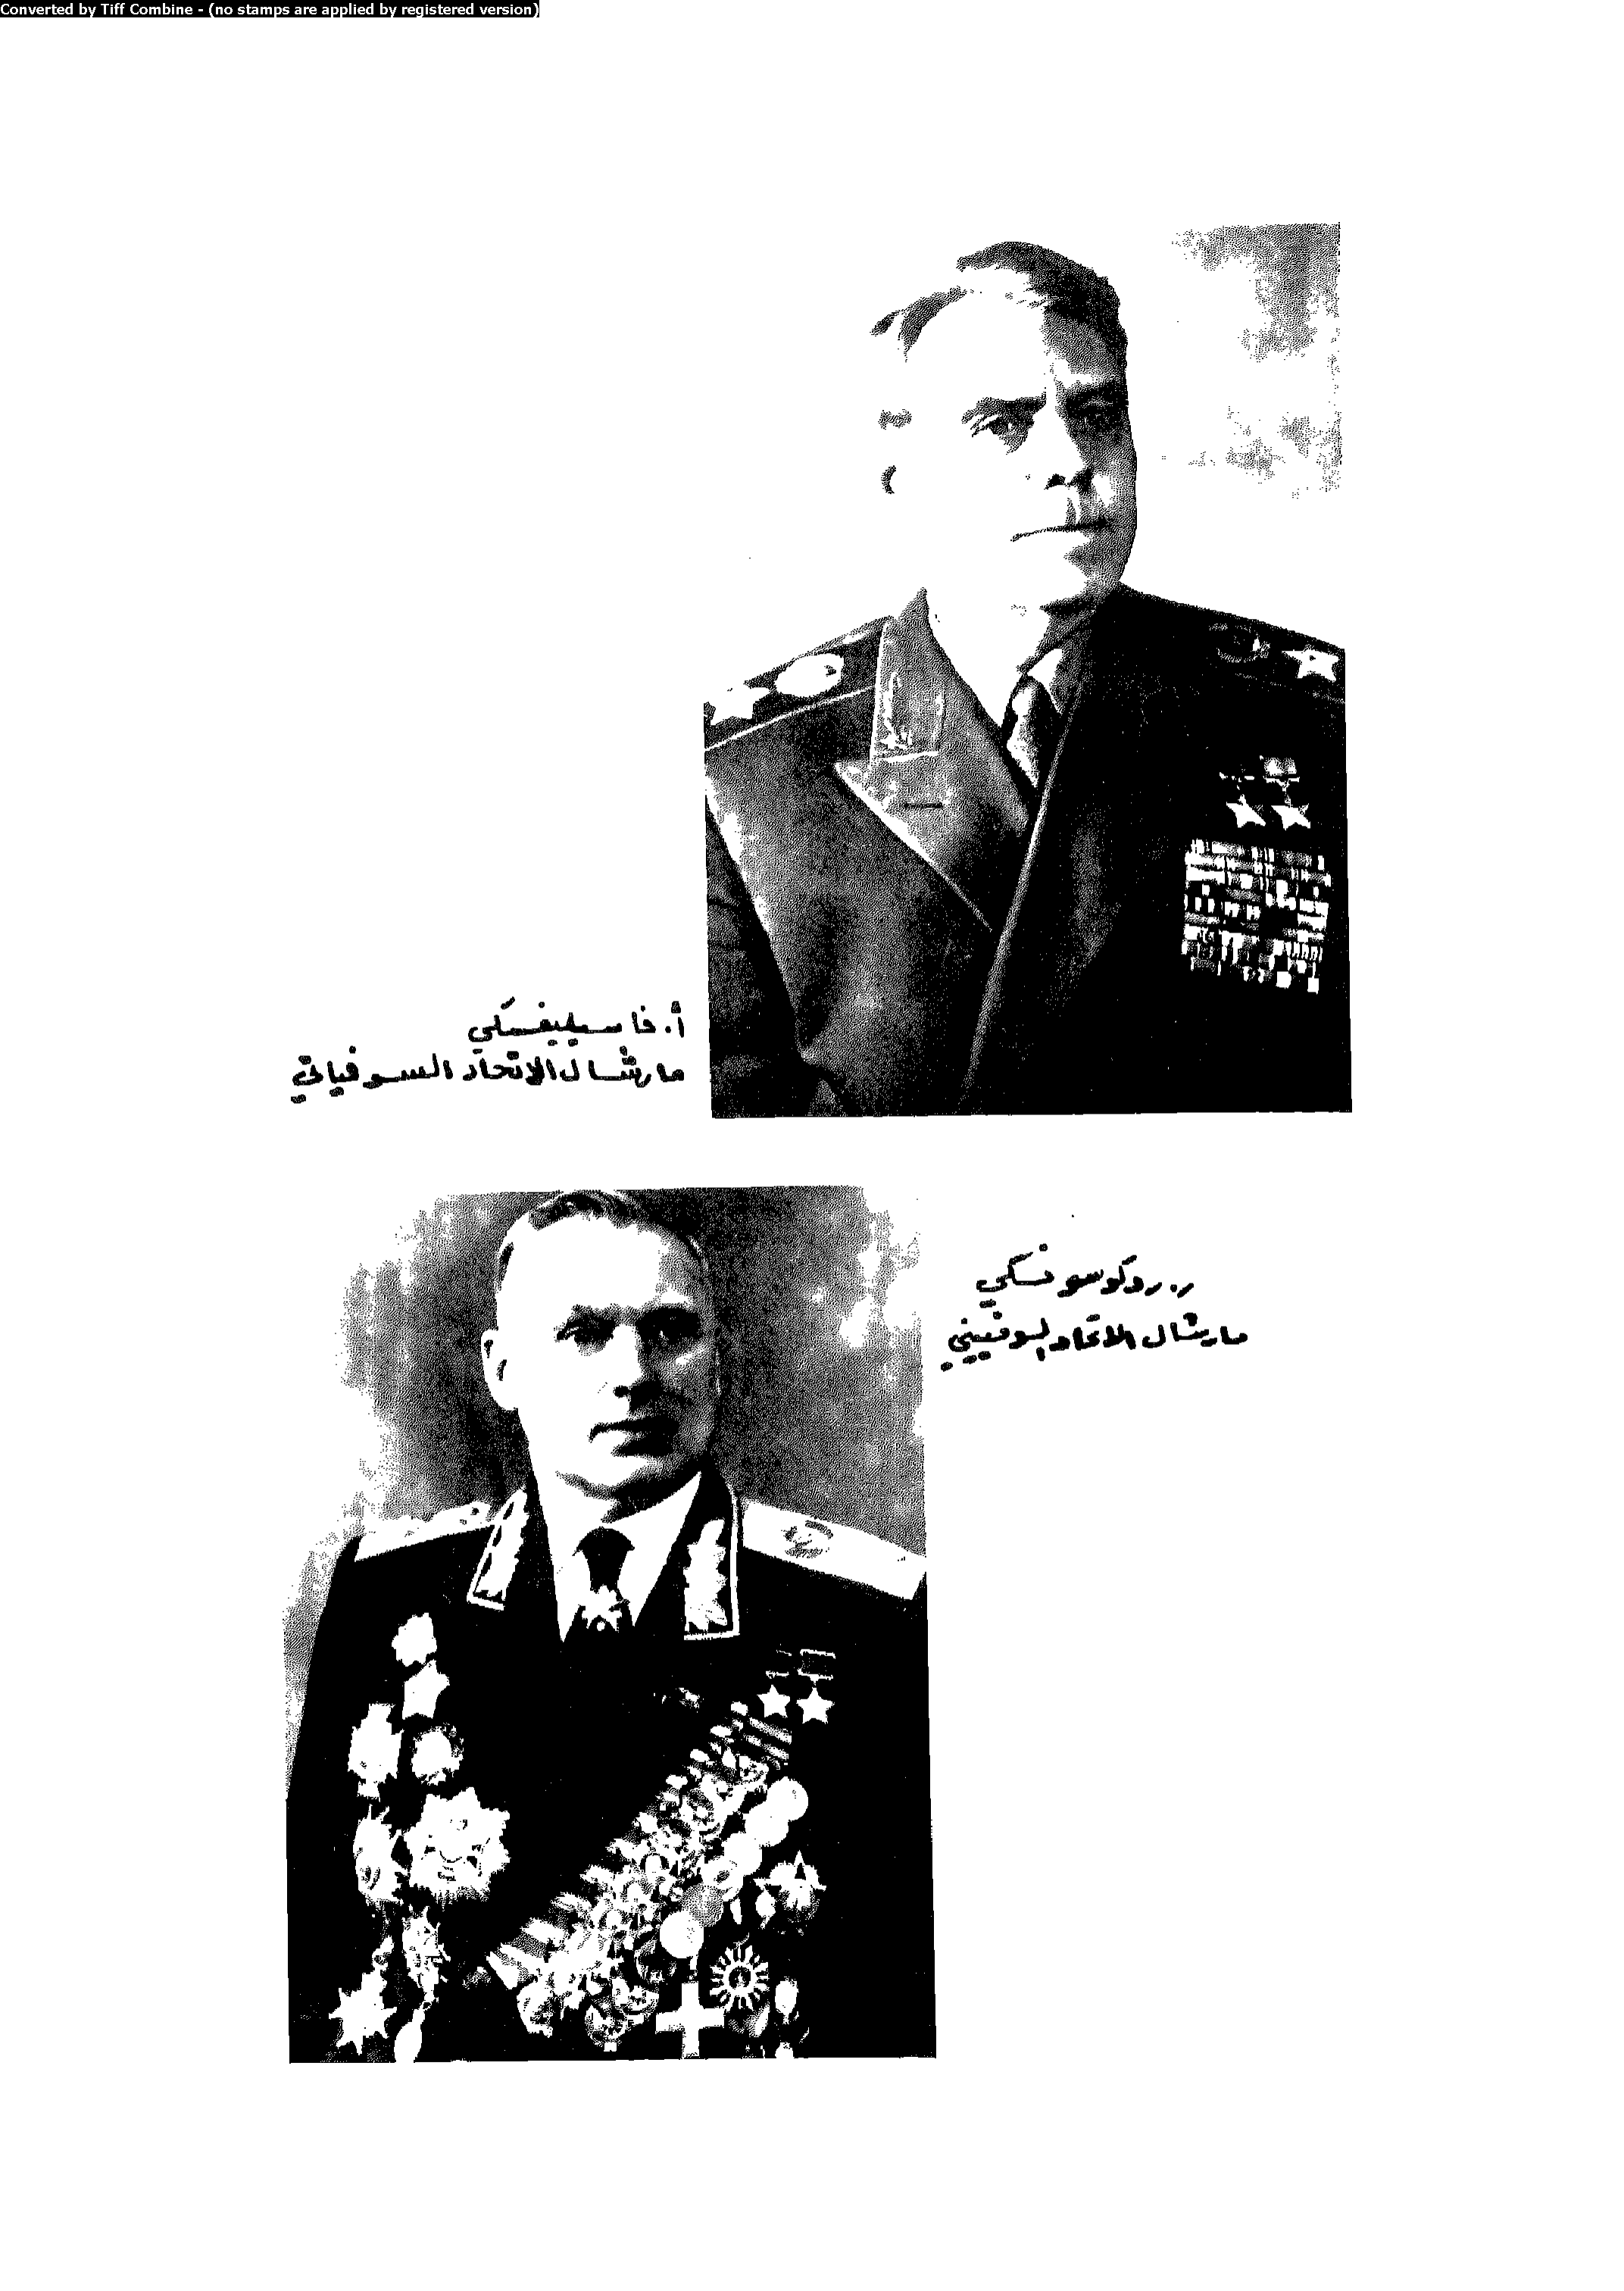 Converted by Tiff Combine - (no stamps are applied by registered version)
أ. فاسيليفسكي
مارشال الاتحاد السوفياتي
ر. روكوسوفسكي
مارشال الاتحاد السوفييتي